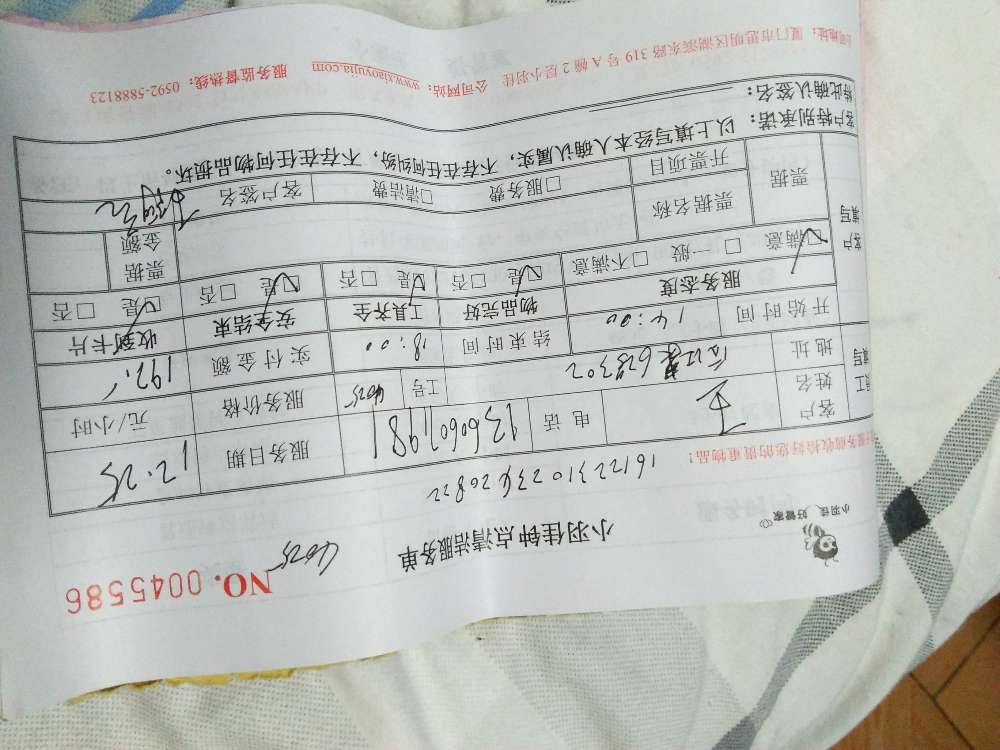 NO. 0045586
小羽佳 好管家
小羽佳钟点清洁服务单
4025
服务前收拾好您的贵重物品!
1612231023620822
客户姓名 王 电话 13606071981 服务日期 12.25
地址 工号 4025 服务价格 元/小时
开始时间 14:00 结束时间 18:00 实付金额 192.
服务态度 物品完好 工具齐全 安全结束 收到卡片
客户填写
□满意 □一般 □不满意 □是 □否 □是 □否 □是 □否 □是 □否
票据 票据名称 票据金额
开票项目 □服务费 □清洁费 客户签名
客户特别承诺: 以上填写经本人确认属实,不存在任何纠纷,不存在任何物品损坏。
特此确认签名:
公司地址:厦门市思明区湖滨东路319号A幢2层小羽佳 公司网站:www.xiaoyujia.com 服务监督热线:0592-5888123